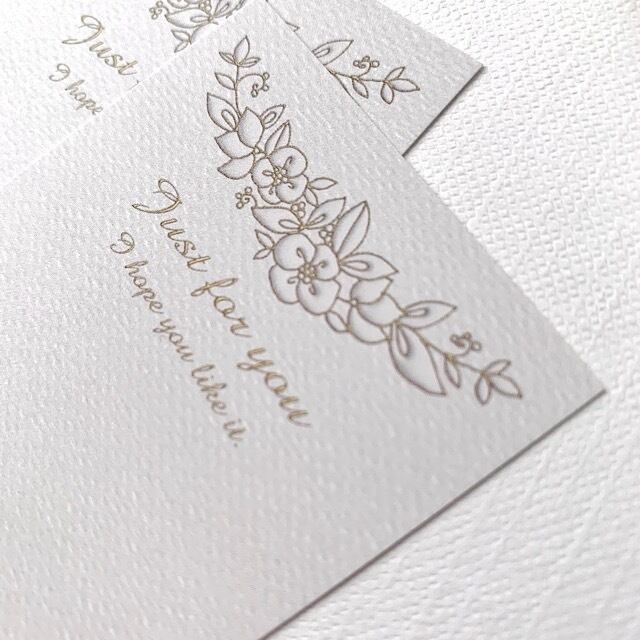 Just
I hope
Just for you
I hope you like it.